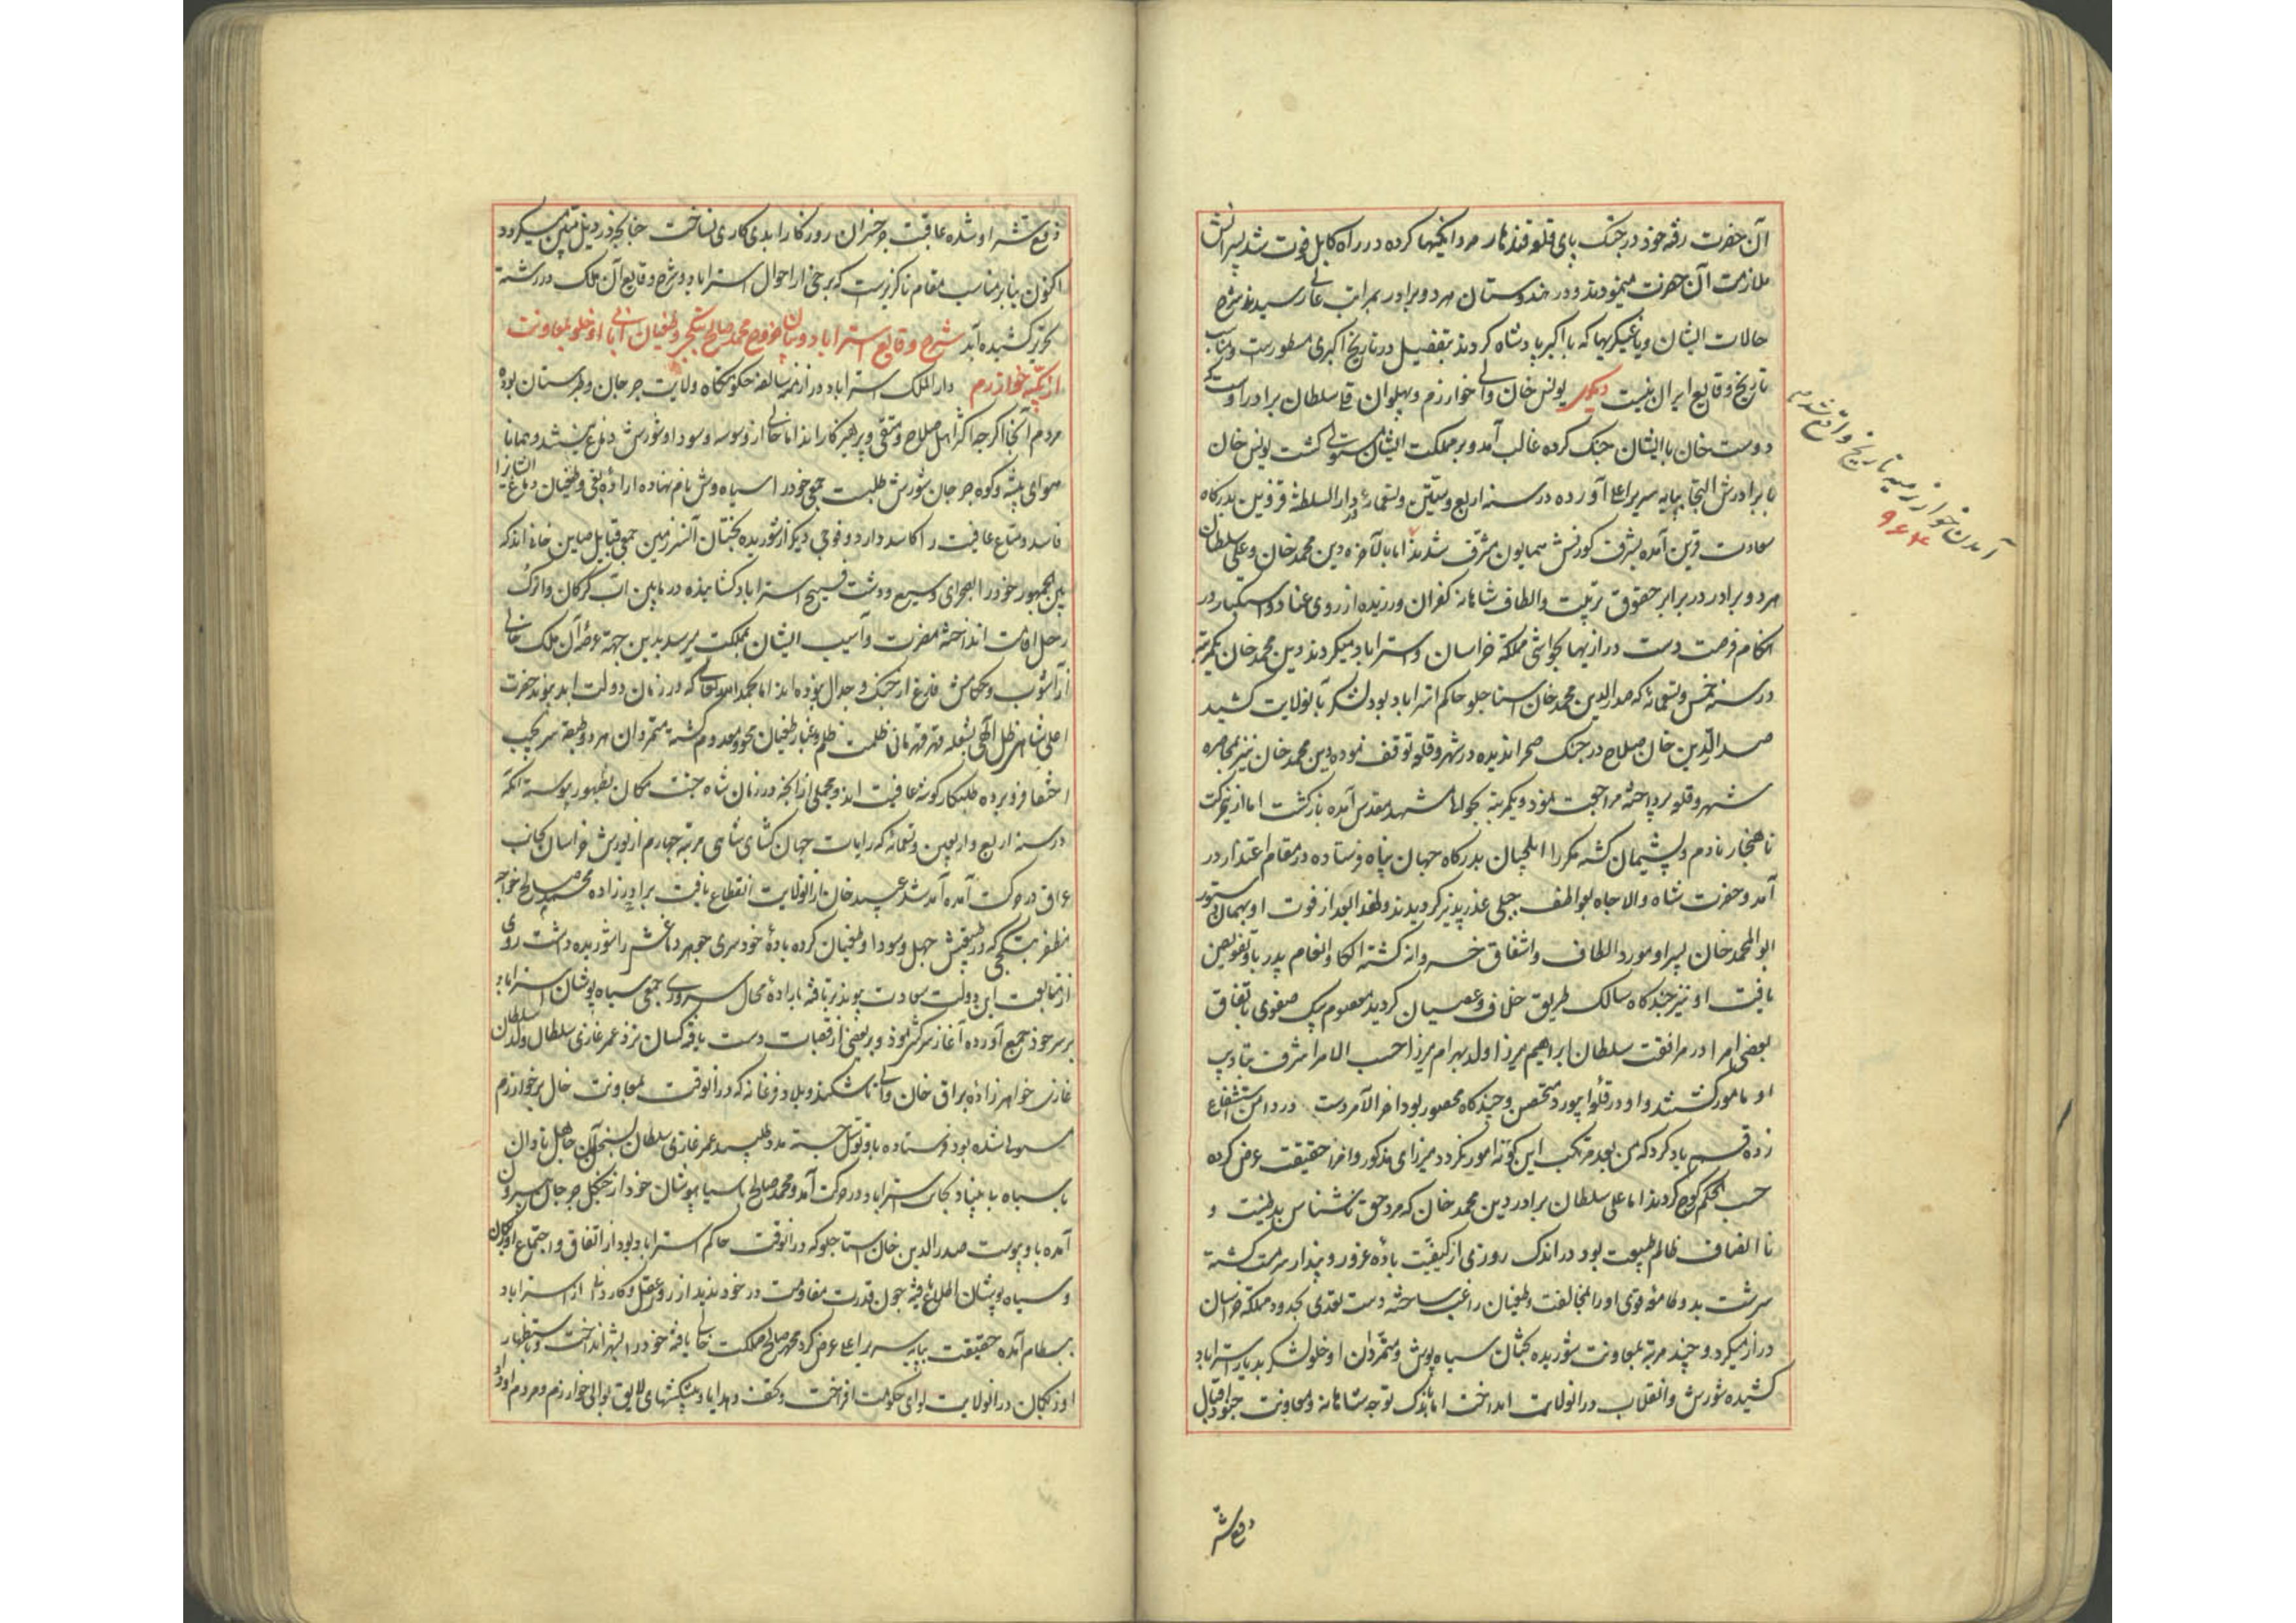 آن حضرت رفته خود در جنک پای قلعه قندهار مردانکیها کرده در راه کابل فوت شد پسرانش
ملازمت آن حضرت مینمودند و در هندوستان هر دو برادر بمراتب عالی رسیدند شرح
حالات ایشان و یاغیکریها که با اکبر پادشاه کردند بتفصیل در تاریخ اکبری مسطورست و مناسب
تاریخ وقایع ایران نیست دیکر یونس خان والی خوارزم و پهلوان قلی سلطان برادر اوست که
دوست خان با ایشان جنک کرده غالب آمد و بر مملکت ایشان مستولی کشت یونس خان
با برادرش التجا بپایه سریر اعلا آورده در سنه اربع و ستین و تسعمائه در دار السلطنه قزوین بدرکاه
سعادت قرین آمده بشرف کورنش همایون مشرف شدند اما بالاخره دین محمد خان و علی سلطان
هر دو برادر در برابر حقوق تربیت و الطاف شاهانه کفران ورزیده از روی عناد و استکبار در
هنکام فرصت دست درازیها بحواشی مملکة خراسان و استراباد میکردند دین محمد خان یکمرتبه
در سنه خمس و تسعمائه که صدر الدین محمد خان استاجلو حاکم استراباد بود لشکر بآنولایت کشید
صدر الدین خان صلاح در جنک صحرا ندیده در شهر و قلعه توقف نموده دین محمد خان نیز بمحاصره
شهر و قلعه نپرداخته مراجعت نمود و یکمرتبه بحوالی مشهد مقدس آمده بازکشت اما از حرکت
ناهنجار نادم و پشیمان کشته مکررا ایلچیان بدرکاه جهان پناه فرستاده در مقام اعتذار در
آمد و حضرت شاه والاجاه بعواطف جبلی عذرپذیر کردیدند و لهذا بعد از فوت او بهمان دستور
ابوالمحمد خان پسر او مورد الطاف و اشفاق خسروانه کشته الکا و انعام پدر باو تفویض
یافت او نیز چندکاه سالک طریق خلاف و عصیان کردید معصوم بیک صفوی باتفاق
بعضی امرا در مرافقت سلطان ابراهیم میرزا ولد بهرام میرزا حسب الامر اشرف بتادیب
او مامور کشتند و او در قلعه ابیورد متحصن و چندکاه محصور بود اخر الامر دست در دامن استشفاع
زده قسم یاد کرد که من بعد مرتکب این کونه امور نکردد میرزای مذکور و امرا حقیقت عرض کرده
حسب الحکم کوچ کردند اما علی سلطان برادر دین محمد خان که مرد حق ناشناس بدطینت و
نا انصاف ظالم طبیعت بود در اندک روزی از کیفیت باده غرور و پندار سرمست کشته
سرشت بد و طامعه قوی او را بمخالفت و طغیان راغب ساخته دست تعدی بحدود مملکة خراسان
دراز میکرد و چند مرتبه بمعاونت شوریده بختان سیاه پوش و متمردان اوخلو لشکر بدیار استراباد
کشیده شورش و انقلاب در انولایت انداخت اما باندک توجه شاهانه و معاونت جنود اقبال
دفع شر
آمدن خوارزمیه تاریخ واقع شده
۹۶۴
دفع شر او شده عاقبت جز خسران روزکار ابدی کاری نساخت چنانچه در ذیل مبین میکردد
اکنون بنابر مناسب مقام ناکزیرست که برخی از احوال استراباد و شرح وقایع آن ملک در رشته
تحریر کشیده آید شرح وقایع استراباد و بیان خروج محمد صالح بتکچی و طغیان ابای اوخلو بمعاونت
ازبکیه خوارزم دارالملک استراباد در ازمنه سالفه حکومتکاه ولایت جرجان و طبرستان بوده
مردم آنجا اکرچه اکثر اهل صلاح و متقی و پرهیزکارند اما خالی از وسوسه سودا و شورش دماغ نیستند و همانا
هوای بیشه و کوه جرجان شورش طلبست جمعی خود را سیاه پوش نام نهاده اراده بغی و طغیان دماغ ایشان را
فاسد و متاع عافیت را کاسد دارد و فوجی دیکر از شوریده بختان آنسرزمین جمعی قبایل صاین خانی اند که
از جمهور خود را بصحرای وسیع و دشت فسیح استراباد کشانیده در مابین آب کرکان و اترک
رحل اقامت انداخته مضرت و آسیب ایشان بمملکت میرسد بدین جهة عرصه آن ملک خالی
از آشوب و حکامش فارغ از جنک و جدال نبوده اند اما بحمد الله تعالی که در زمان دولت ابد پیوند حضرت
اعلی شاهی ظل آلهی بشعله قهر قهرمانی ظلمت ظلم و غبار طغیان محو و معدوم کشته متمردان هر دو طبقه سر بجیب
اختفا فرو برده طلبکار کوشه عافیت اند و مجملی از انچه در زمان شاه جنت مکان بظهور پیوسته آنکه
در سنه اربع و اربعین و تسعمائه که رایات جهان کشای شاهی مرتبه چهارم از یورش خراسان بجانب
عراق در حرکت آمده آمد شد عبید خان از آنولایت انقطاع یافت برادرزاده محمد صالح خواجه
مظفر بتکچی که در طبعتش جهل و سودا و طغیان کرده باده خودسری جوهر دماغش را شوریده داشت روی
از متابعت این دولت سعادت پیوند برتافته باراده محال سروری جمعی سیاه پوشان استراباد
بر سر خود جمع آورده آغاز سرکشی نمود و بر بعضی از قصبات دست یافته کسان نزد عمر غازی سلطان ولد سلطان
غازی خواهرزاده براق خان والی تاشکند و بلاد فرغانه که در انوقت بمعاونت خال بر خوارزم
مستولی شده بود فرستاده باو توسل جسته مدد طلبید عمر غازی سلطان بسخن آن جاهل نادان
با سپاه بی بنیاد بجانب استراباد در حرکت آمد و محمد صالح با سیاه پوشان خود از جنکل جرجان بیرون
آمده باو پیوست صدر الدین خان استاجلو که در انوقت حاکم استراباد بود از اتفاق و اجتماع اوزبکان
و سیاه پوشان اطلاع یافته چون قدرت مقاومت در خود ندید از روی عقل و کاردانی از استراباد
ببسطام آمده حقیقت بپایه سریر اعلا عرض کرد محمد صالح مملکت خالی یافته خود را بشهر انداخت و باستظهار
اوزبکان در انولایت لوای حکومت افراخت و تحف و هدایا و پیشکشهای لایق بوالی خوارزم و مردم او داد